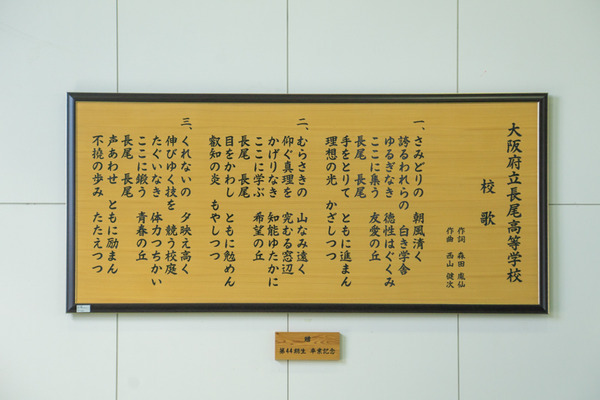 大阪府立長尾高等学校
校歌
作詞 森田 胤仙
作曲 西山 健次
一、さみどりの 朝風清く
誇るわれらの 白き学舎
ゆるぎなき 徳性はぐくみ
ここに集う 友愛の丘
長尾 長尾
手をとりて ともに進まん
理想の光 かざしつつ
二、むらさきの 山なみ遠く
仰ぐ真理を 究むる窓辺
かげりなき 知能ゆたかに
ここに学ぶ 希望の丘
長尾 長尾
目をかわし ともに勉めん
叡知の炎 もやしつつ
三、くれないの 夕映え高く
伸びゆく技を 競う校庭
たぐいなき 体力つちかい
ここに鍛う 青春の丘
長尾 長尾
声あわせ ともに励まん
不撓の歩み たたえつつ
贈
第44期生 卒業記念